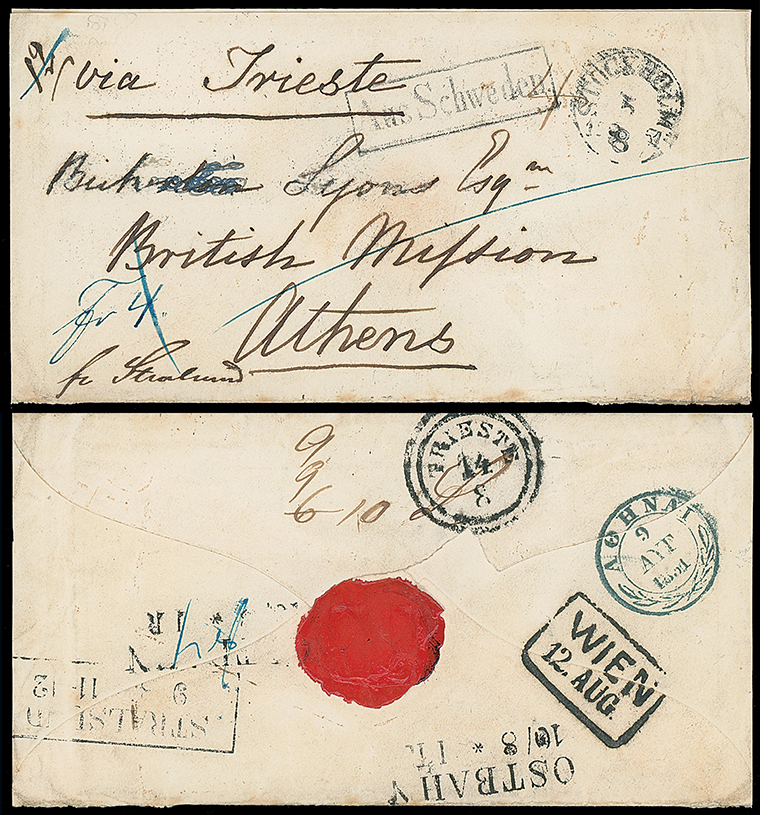 via Trieste
Aus Schweden
STOCKHOLM
8
Lyons Esqre
British Mission
Fr 4
Athens
fr Stralsund
TRIESTE
14
8
9
9
6 10
ΑΘΗΝΑΙ
9
ΑΥΓ
1851
WIEN
12. AUG.
STRALSUND
9
11-12
OSTBAH
10/8 * I T.